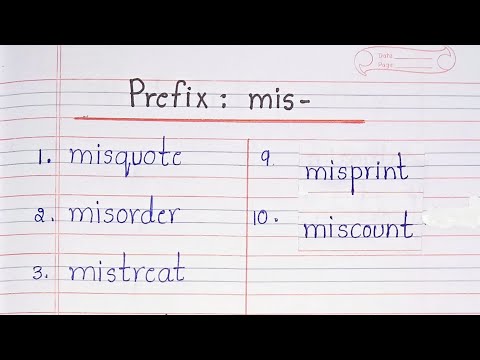 Date
Page
Prefix : mis-
1. misquote
2. misorder
3. mistreat
9. misprint
10. miscount